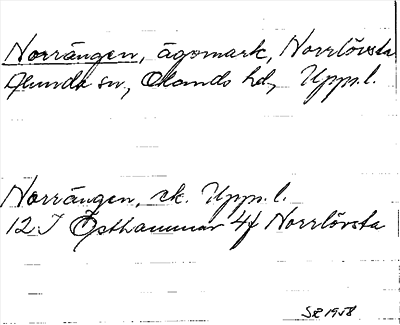 Norrängen, ägomark, Norrlövsta
Alunda sn, Olands hd, Upps. l.
Norrängen, ek. Upps. l.
12 I Östhammar 4f Norrlövsta
SZ 1958